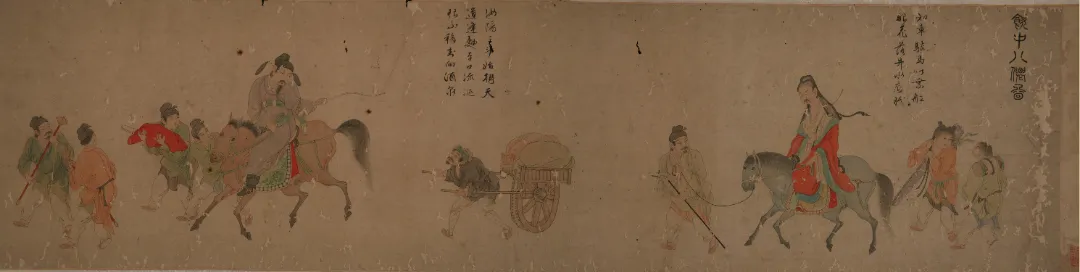 飲中八僊圖
知章騎馬似乘船
眼花落井水底眠
汝陽三斗始朝天
道逢麴車口流涎
恨不移封向酒泉